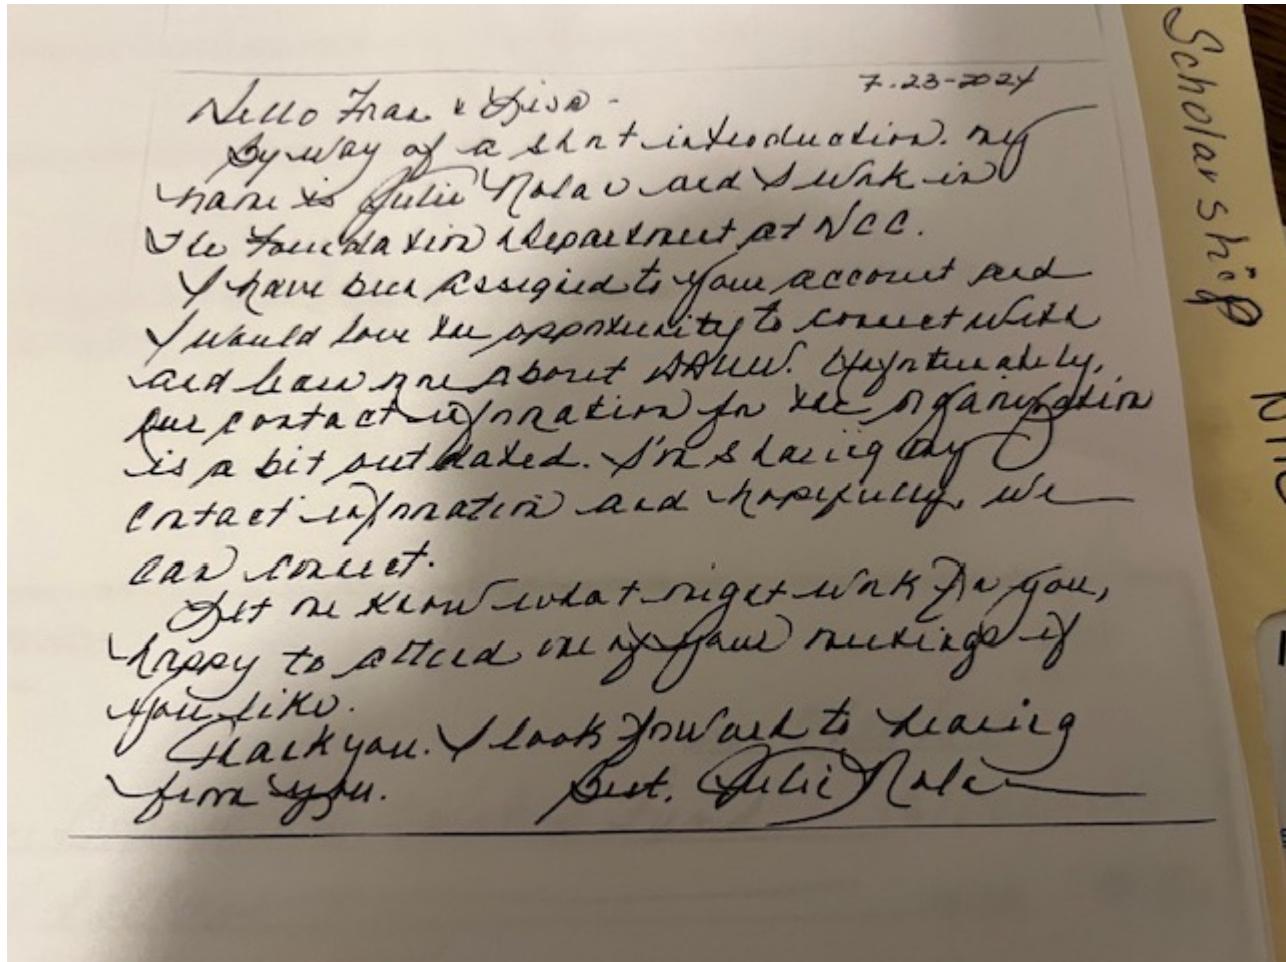 7-23-2024
Hello Fran & Lisa -
By way of a short introduction. my
name is Julie Nolan and I work in
the Foundation Department at NCC.
I have been assigned to your account and
I would love the opportunity to connect with
and learn more about AAUW. Unfortunately,
our contact information for the organization
is a bit out dated. I'm sharing my
contact information and hopefully, we
can connect.
Let me know what might work for you,
happy to attend one of your meetings if
you like.
Thank you. I look forward to hearing
from you. Best, Julie Nolan
Scholarship